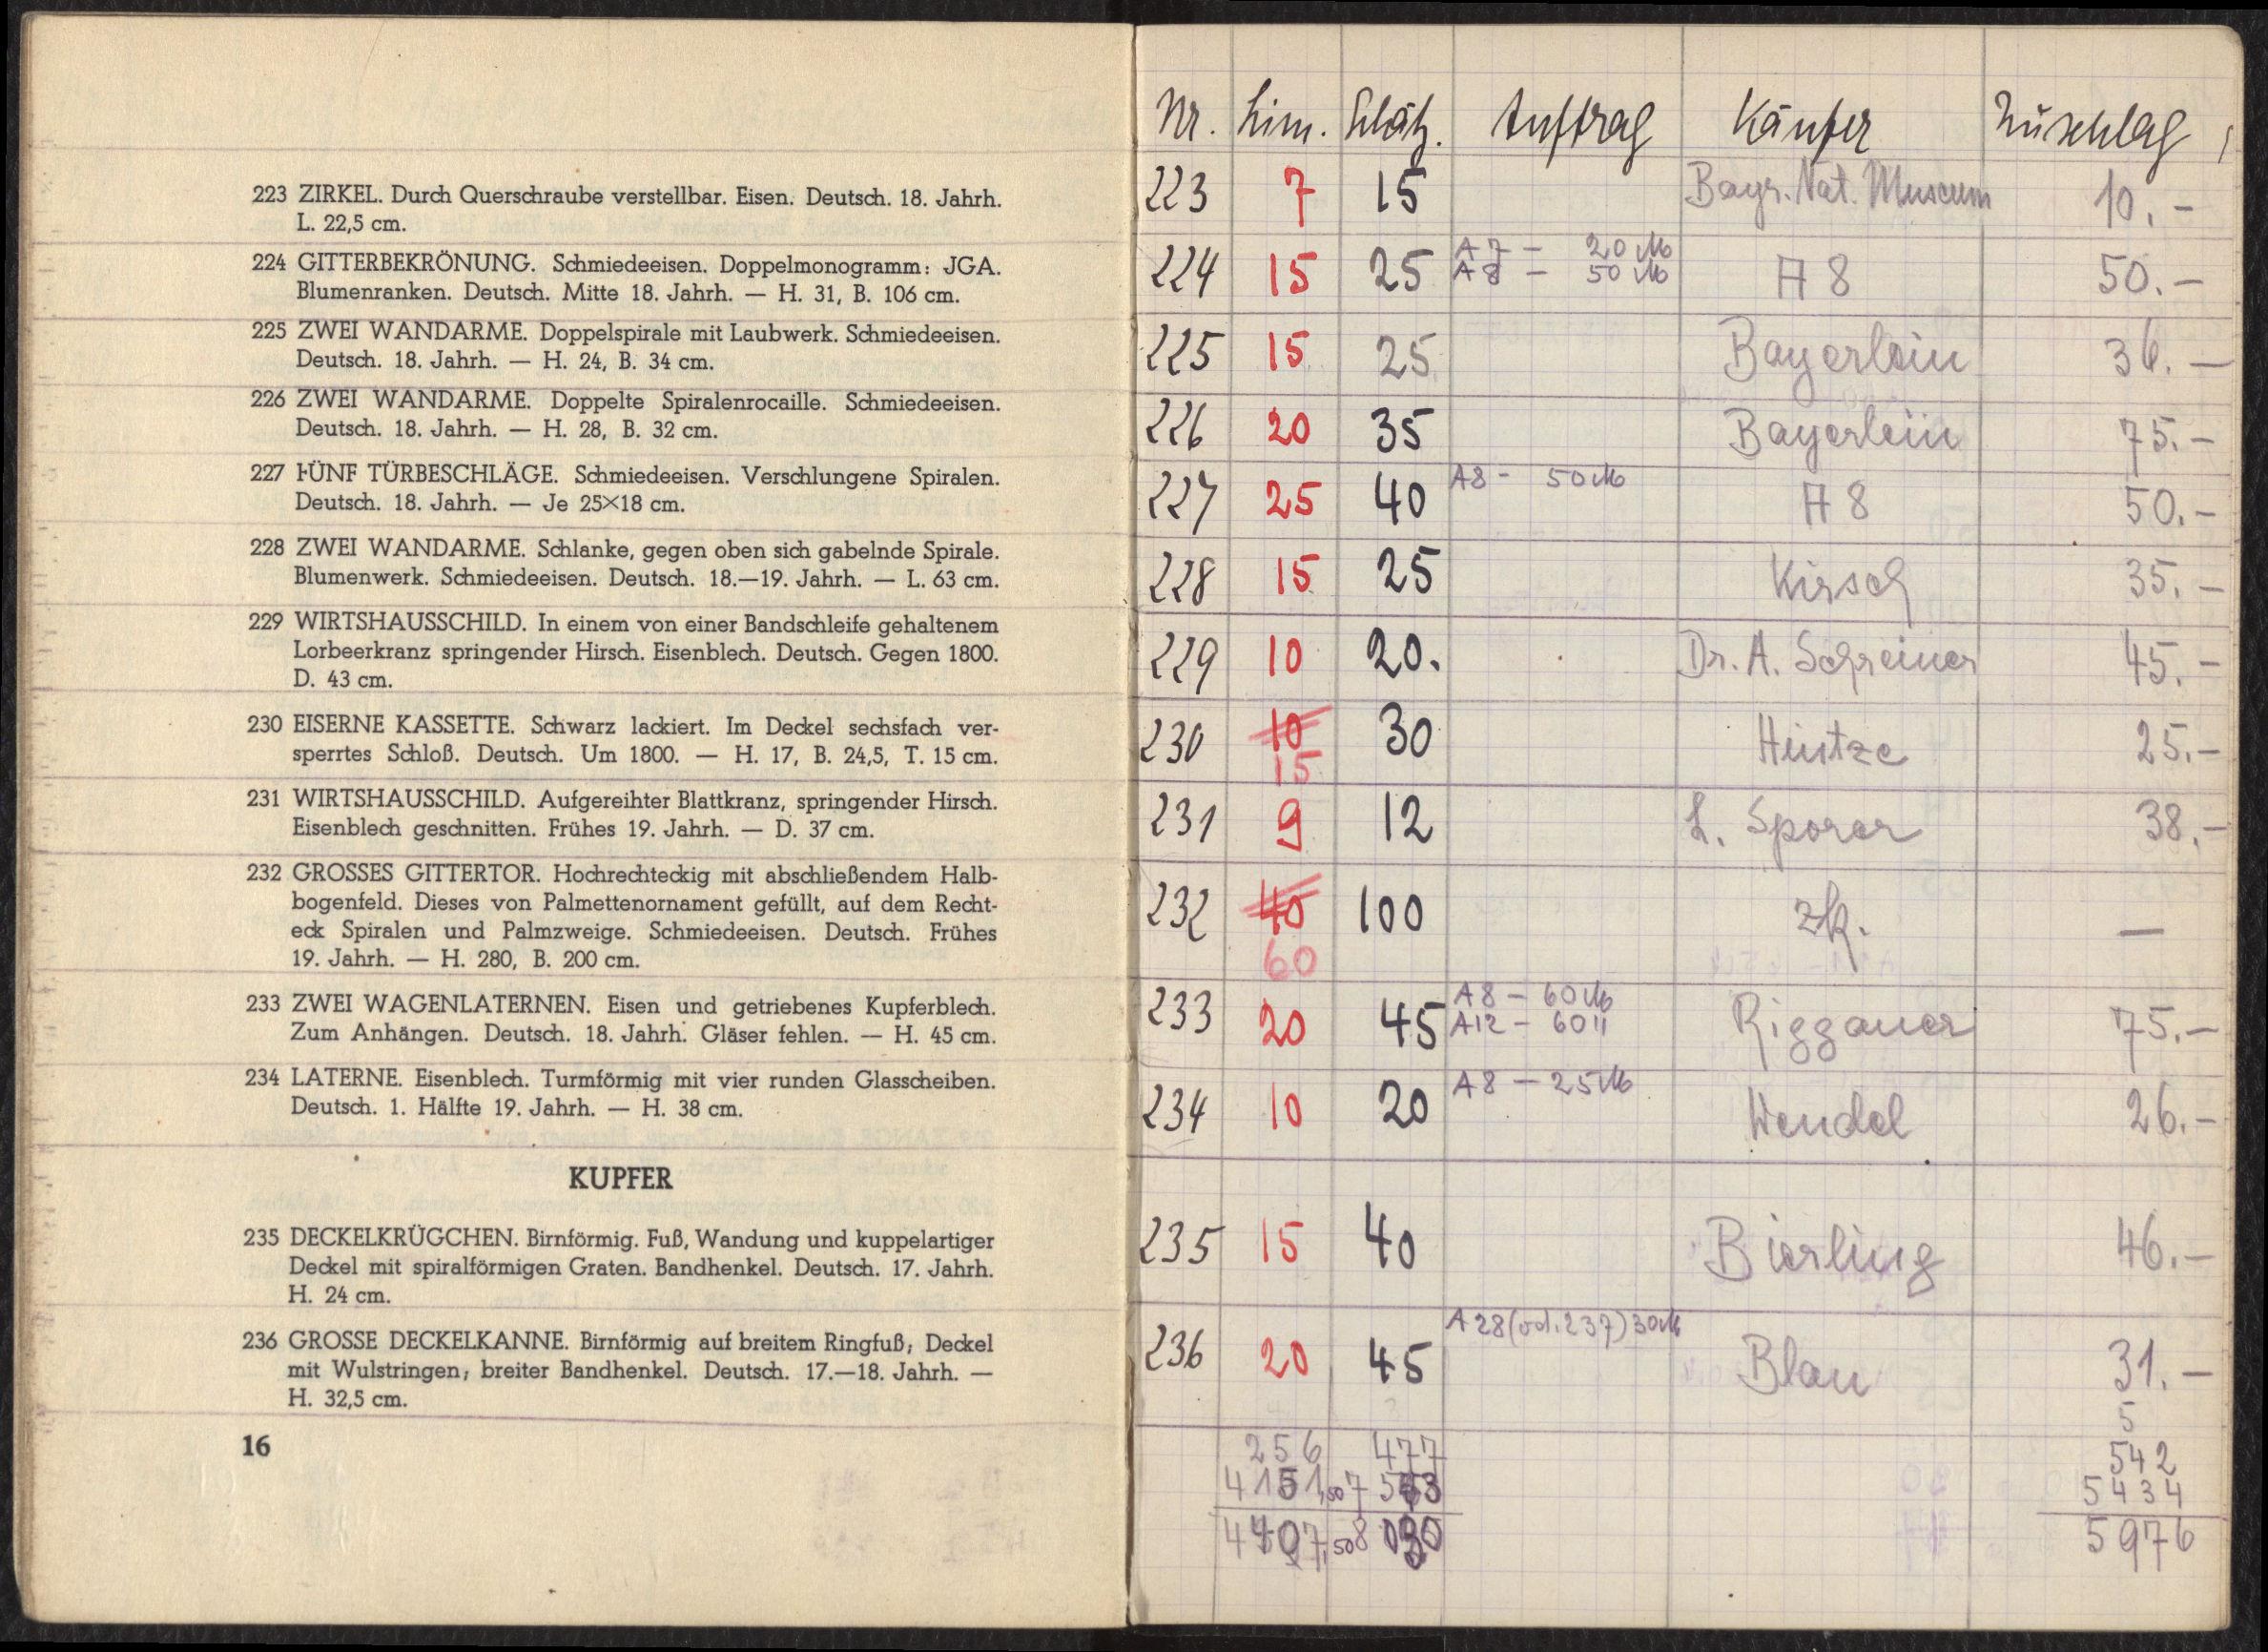 223 ZIRKEL. Durch Querschraube verstellbar. Eisen. Deutsch. 18. Jahrh.
L. 22,5 cm.
224 GITTERBEKRÖNUNG. Schmiedeeisen. Doppelmonogramm: JGA.
Blumenranken. Deutsch. Mitte 18. Jahrh. — H. 31, B. 106 cm.
225 ZWEI WANDARME. Doppelspirale mit Laubwerk. Schmiedeeisen.
Deutsch. 18. Jahrh. — H. 24, B. 34 cm.
226 ZWEI WANDARME. Doppelte Spiralenrocaille. Schmiedeeisen.
Deutsch. 18. Jahrh. — H. 28, B. 32 cm.
227 FÜNF TÜRBESCHLÄGE. Schmiedeeisen. Verschlungene Spiralen.
Deutsch. 18. Jahrh. — Je 25×18 cm.
228 ZWEI WANDARME. Schlanke, gegen oben sich gabelnde Spirale.
Blumenwerk. Schmiedeeisen. Deutsch. 18.—19. Jahrh. — L. 63 cm.
229 WIRTSHAUSSCHILD. In einem von einer Bandschleife gehaltenem
Lorbeerkranz springender Hirsch. Eisenblech. Deutsch. Gegen 1800.
D. 43 cm.
230 EISERNE KASSETTE. Schwarz lackiert. Im Deckel sechsfach ver-
sperrtes Schloß. Deutsch. Um 1800. — H. 17, B. 24,5, T. 15 cm.
231 WIRTSHAUSSCHILD. Aufgereihter Blattkranz, springender Hirsch.
Eisenblech geschnitten. Frühes 19. Jahrh. — D. 37 cm.
232 GROSSES GITTERTOR. Hochrechteckig mit abschließendem Halb-
bogenfeld. Dieses von Palmettenornament gefüllt, auf dem Recht-
eck Spiralen und Palmzweige. Schmiedeeisen. Deutsch. Frühes
19. Jahrh. — H. 280, B. 200 cm.
233 ZWEI WAGENLATERNEN. Eisen und getriebenes Kupferblech.
Zum Anhängen. Deutsch. 18. Jahrh. Gläser fehlen. — H. 45 cm.
234 LATERNE. Eisenblech. Turmförmig mit vier runden Glasscheiben.
Deutsch. 1. Hälfte 19. Jahrh. — H. 38 cm.
KUPFER
235 DECKELKRÜGCHEN. Birnförmig. Fuß, Wandung und kuppelartiger
Deckel mit spiralförmigen Graten. Bandhenkel. Deutsch. 17. Jahrh.
H. 24 cm.
236 GROSSE DECKELKANNE. Birnförmig auf breitem Ringfuß; Deckel
mit Wulstringen; breiter Bandhenkel. Deutsch. 17.—18. Jahrh. —
H. 32,5 cm.
16
Nr. Lim. Schätz. Auftrag Käufer Zuschlag
223 7 15 Bayr. Nat. Museum 10.-
A7 - 20 M
224 15 25 A8 - 50 M A 8 50.-
225 15 25 Bayerlein 36.-
226 20 35 Bayerlein 75.-
227 25 40 A8 - 50 M A 8 50.-
228 15 25 Kirsch 35.-
229 10 20. Dr. A. Schreiner 45.-
230 10 30 Hintze 25.-
15
231 9 12 L. Sporer 38.-
232 40 100 zk. —
60
A8 - 60 M
233 20 45 A12 - 60 " Riggauer 75.-
234 10 20 A8 - 25 M Wendel 26.-
235 15 40 Bierling 46.-
236 20 45 A28 (od. 237) 30 M Blau 31.-
5
256 477 542
4151,50 7553 5434
4407,50 8030 5976